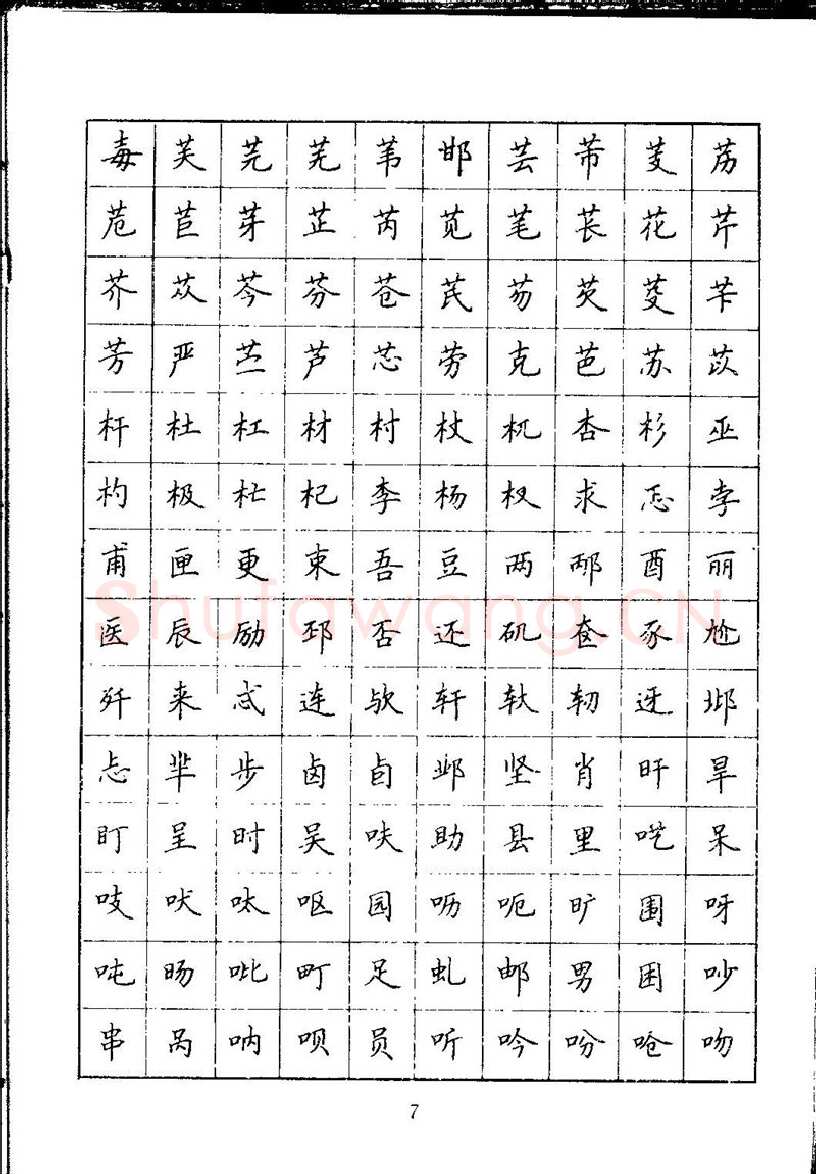 毐芙芫芜苇邯芸芾芰苈
苊苣芽芷芮苋芼苌花芹
芥苁芩芬苍芪芴芡芟苄
芳严苎芦芯劳克芭苏苡
杆杜杠材村杖杌杏杉巫
杓极杧杞李杨杈求忑孛
甫匣更束吾豆两邴酉丽
医辰励邳否还矶奁豕尬
歼来忒连欤轩轪轫迓邶
忐芈步卤卣邺坚肖旰旱
盯呈时吴呋助县里呓呆
吱吠呔呕园呖呃旷围呀
吨旸吡町足虬邮男困吵
串呙呐呗员听吟吩呛吻
Shufawang.CN
7